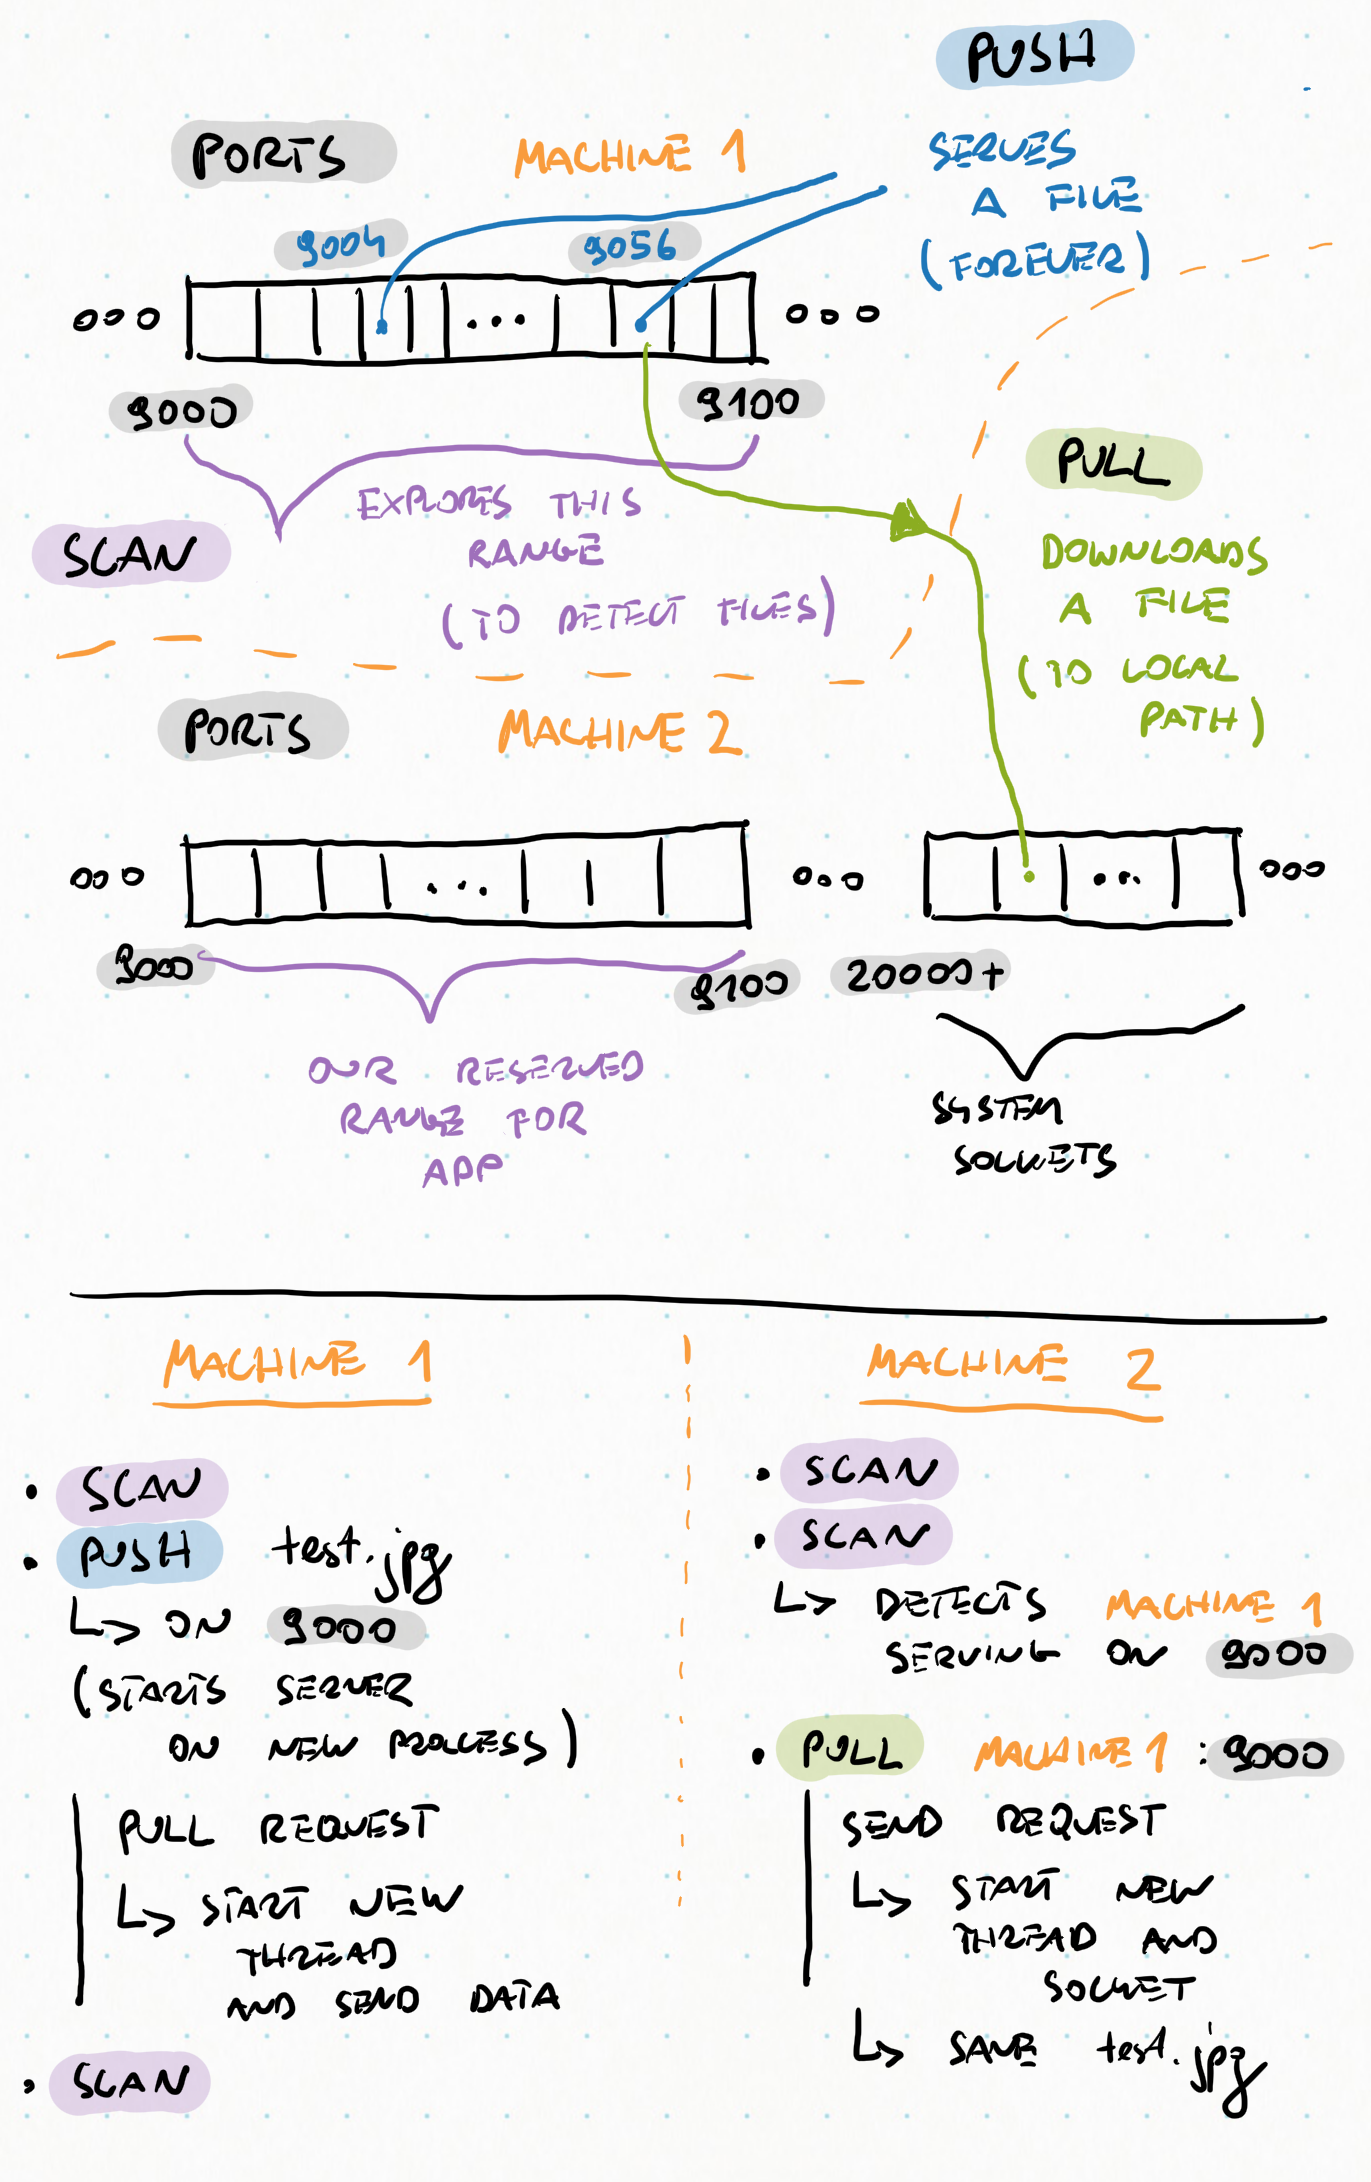 PUSH
SERVES
A FILE
(FOREVER)
PORTS MACHINE 1
9004 9056
9000 9100
SCAN
EXPLORES THIS
RANGE
(TO DETECT FILES)
PULL
DOWNLOADS
A FILE
(TO LOCAL
PATH)
PORTS MACHINE 2
9000 9100 20000+
OUR RESERVED
RANGE FOR
APP
SYSTEM
SOCKETS
MACHINE 1
• SCAN
• PUSH test.jpg
↳ ON 9000
(STARTS SERVER
ON NEW PROCESS)
PULL REQUEST
↳ START NEW
THREAD
AND SEND DATA
• SCAN
MACHINE 2
• SCAN
• SCAN
↳ DETECTS MACHINE 1
SERVING ON 9000
• PULL MACHINE 1 : 9000
SEND REQUEST
↳ START NEW
THREAD AND
SOCKET
↳ SAVE test.jpg